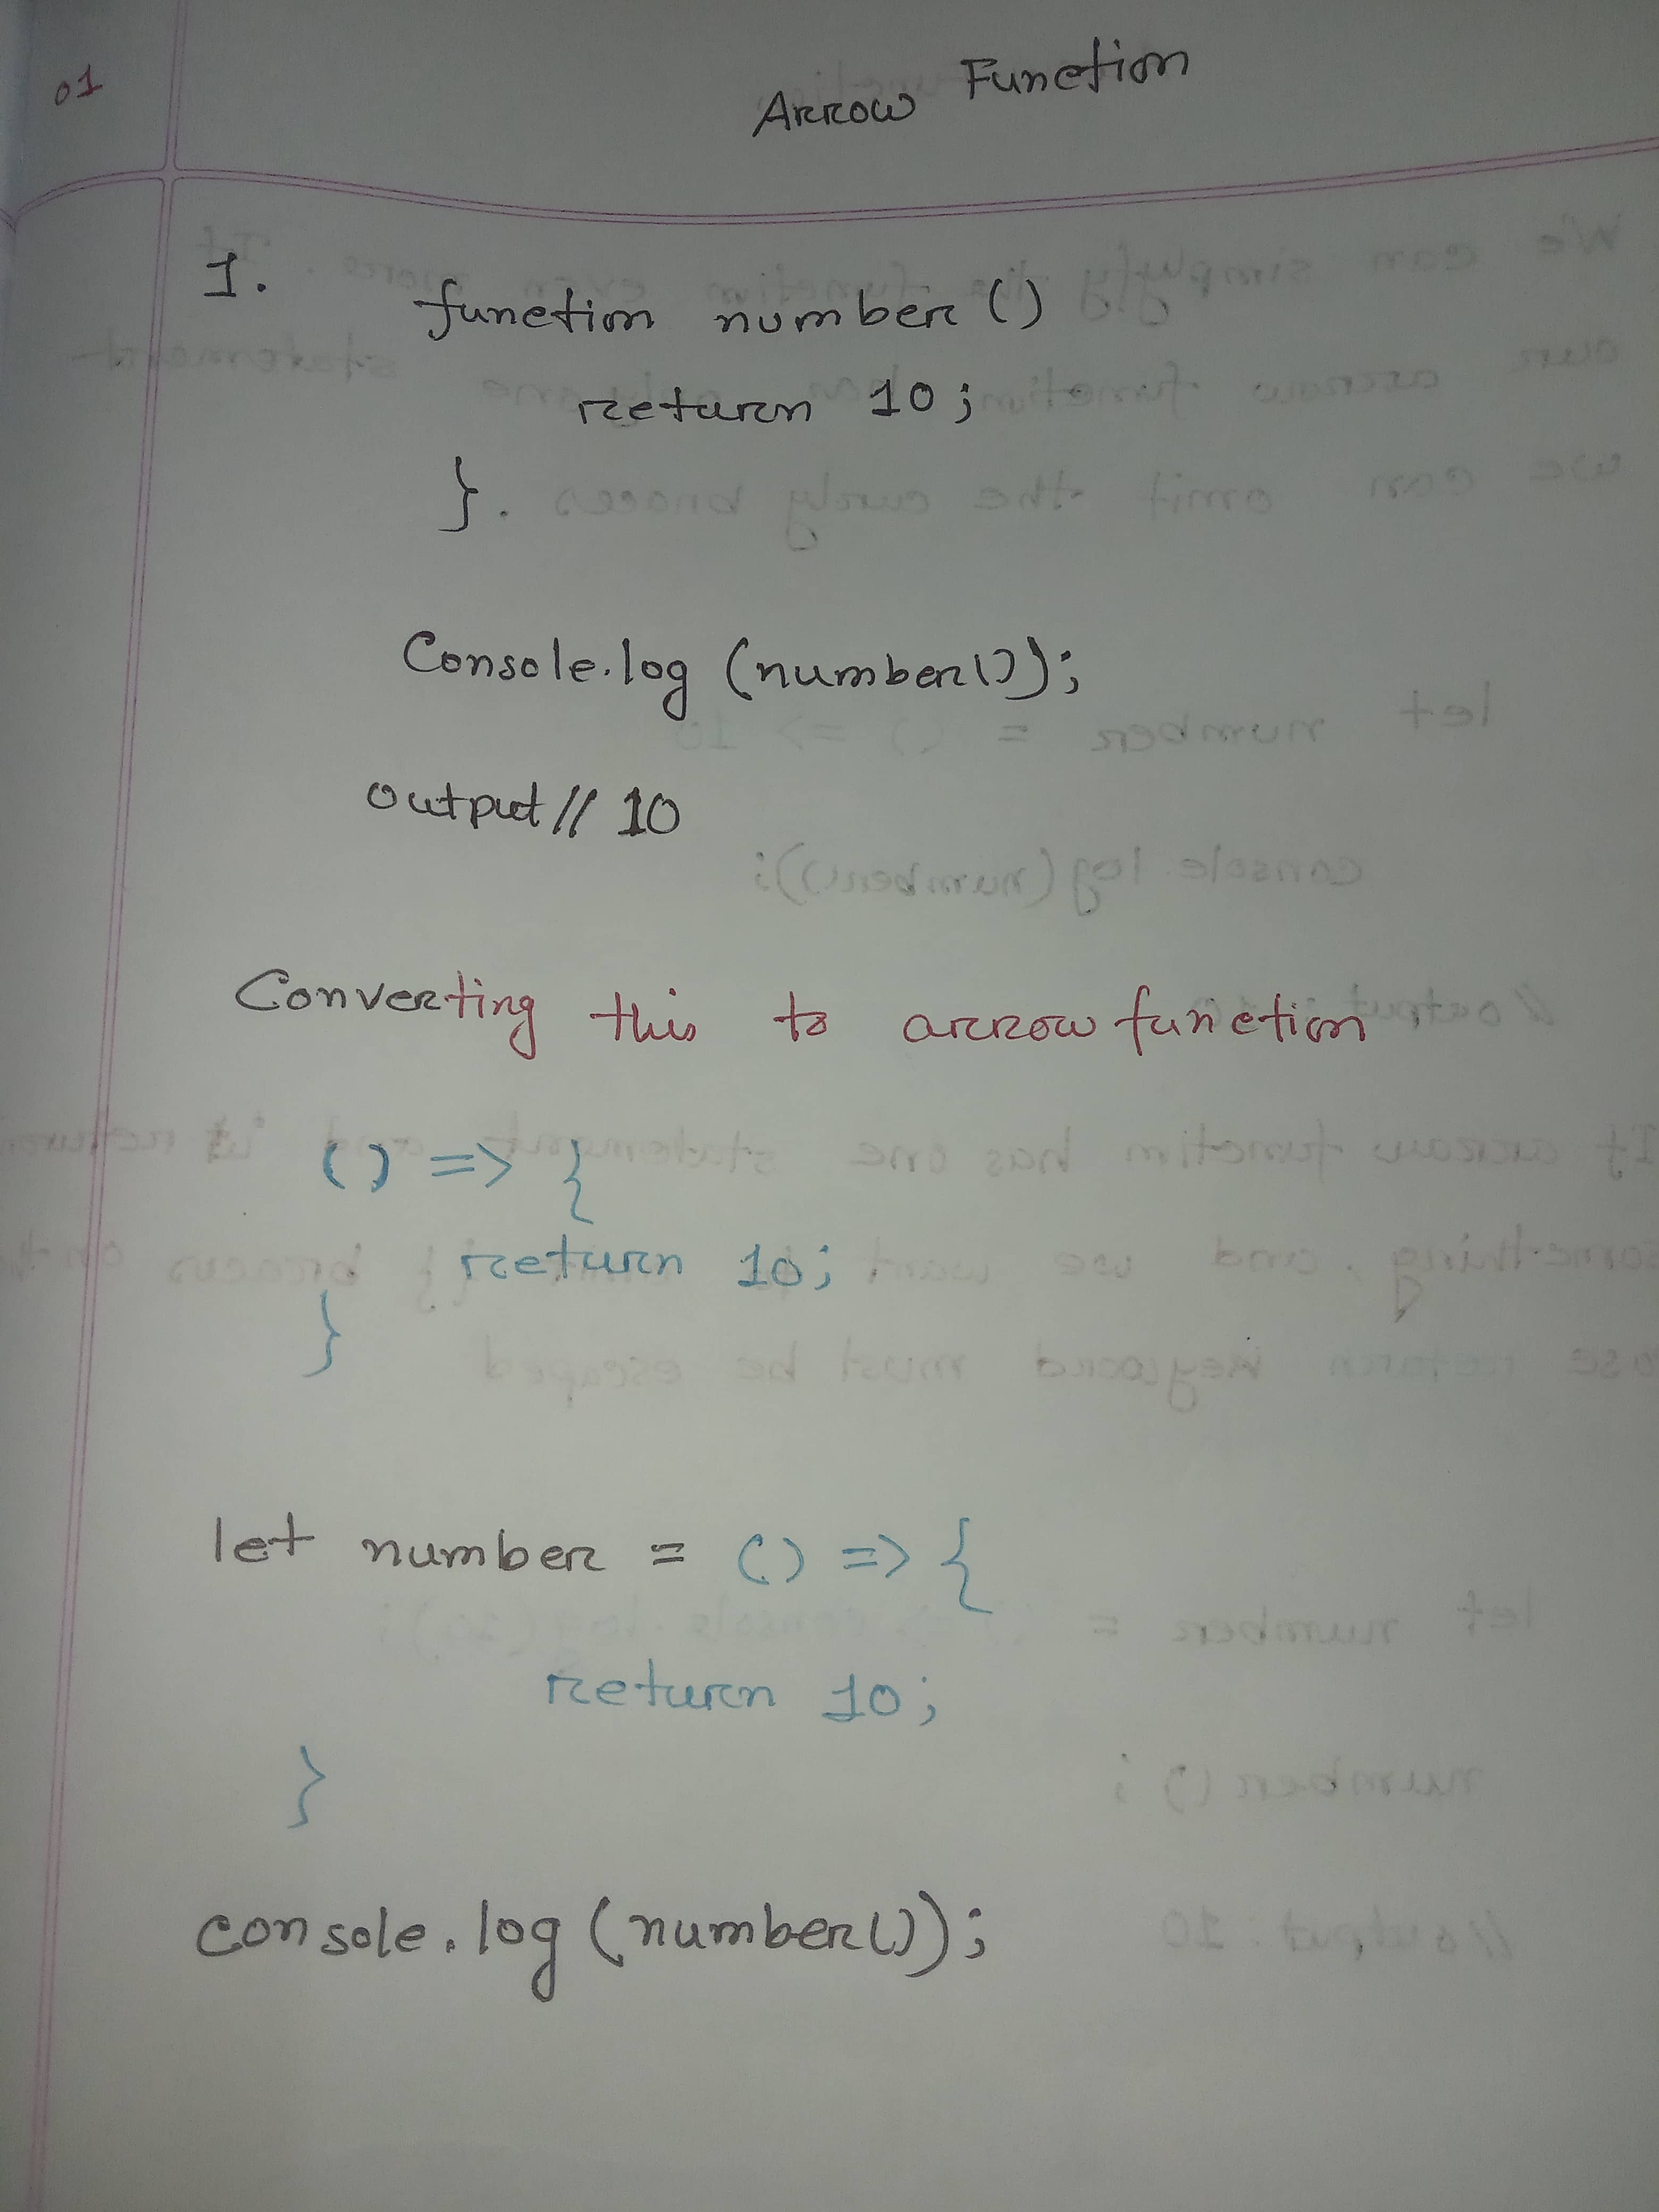 01
Arrow Function
1.
function number ()
return 10;
}.
Console.log (number());
output// 10
Converting this to arrow function
() => {
return 10;
}
let number = () => {
return 10;
}
console.log (number());